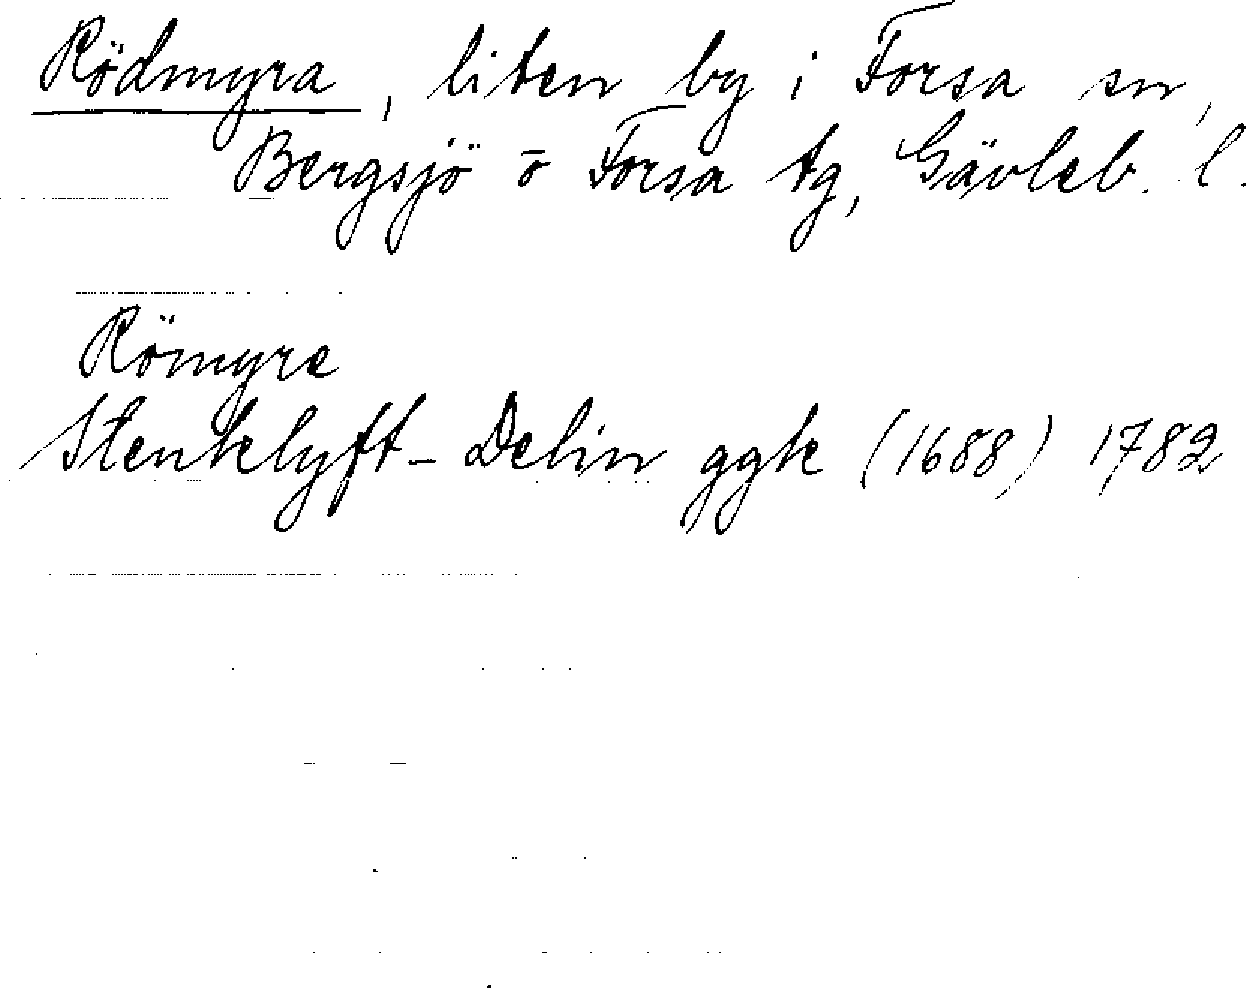 Rödmyra, liten by i Forsa sn,
Bergsjö o Forsa tg, Gävleb. l.
Römyre
Stenklyft - Delin ggk (1688) 1782